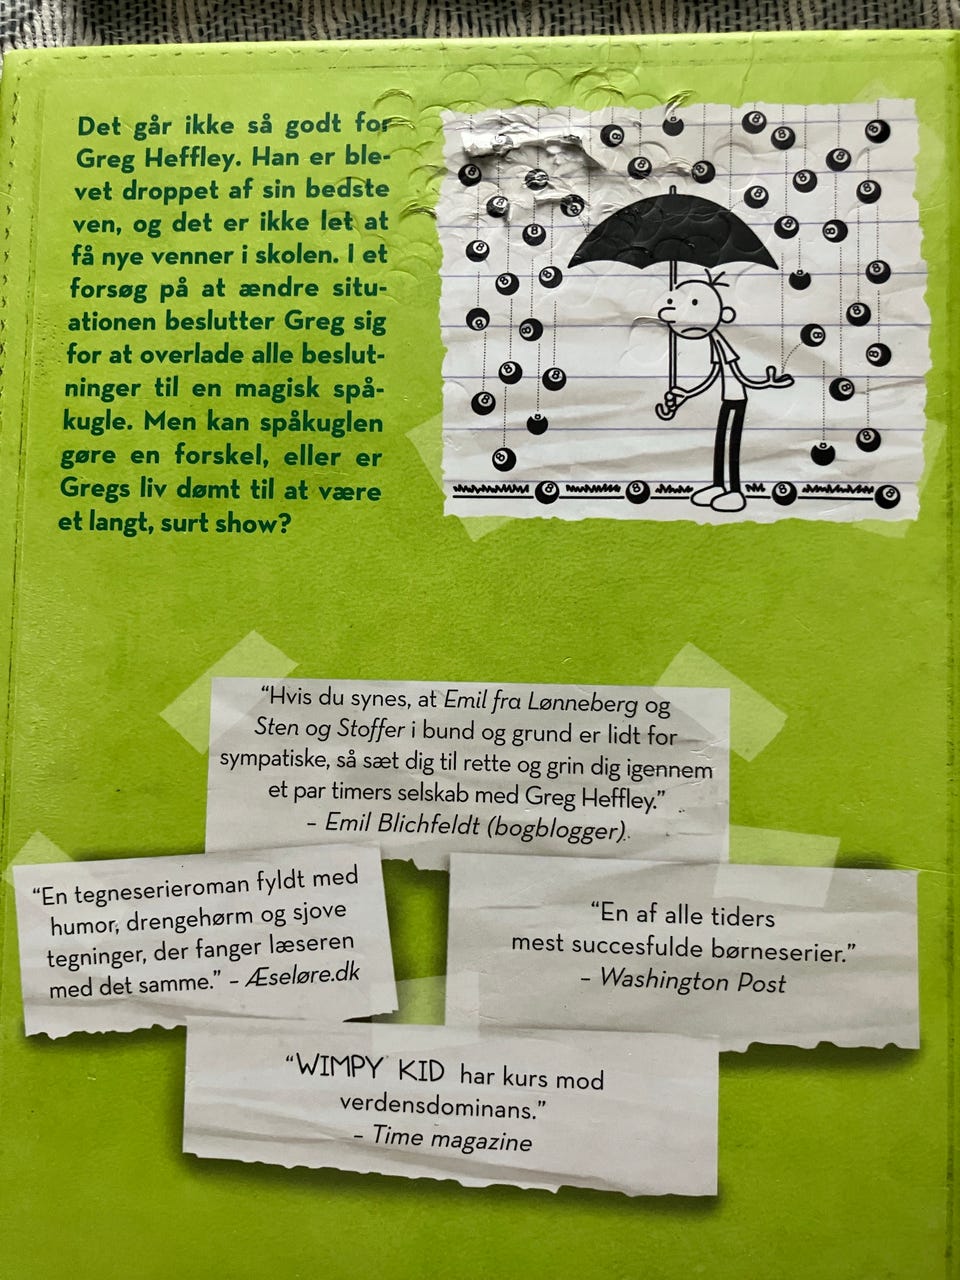 Det går ikke så godt for
Greg Heffley. Han er ble-
vet droppet af sin bedste
ven, og det er ikke let at
få nye venner i skolen. I et
forsøg på at ændre situ-
ationen beslutter Greg sig
for at overlade alle beslut-
ninger til en magisk spå-
kugle. Men kan spåkuglen
gøre en forskel, eller er
Gregs liv dømt til at være
et langt, surt show?
“Hvis du synes, at Emil fra Lønneberg og
Sten og Stoffer i bund og grund er lidt for
sympatiske, så sæt dig til rette og grin dig igennem
et par timers selskab med Greg Heffley.”
– Emil Blichfeldt (bogblogger).
“En tegneserieroman fyldt med
humor, drengehørm og sjove
tegninger, der fanger læseren
med det samme.” – Æseløre.dk
“En af alle tiders
mest succesfulde børneserier.”
– Washington Post
“WIMPY KID har kurs mod
verdensdominans.”
– Time magazine